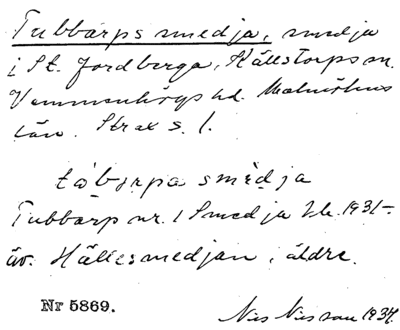 Tubbarps smedja, smedja
i St. Jordberga, Källstorps sn.
Vemmenhögs hd. Malmöhus
län. Strax s. 1.
tàbarpa smedja
Tubbarp nr. 1 Smedja Uk. 1931-
äv. Hällesmedjan, äldre.
Nr 5869.
Nils Nilsson 1937.